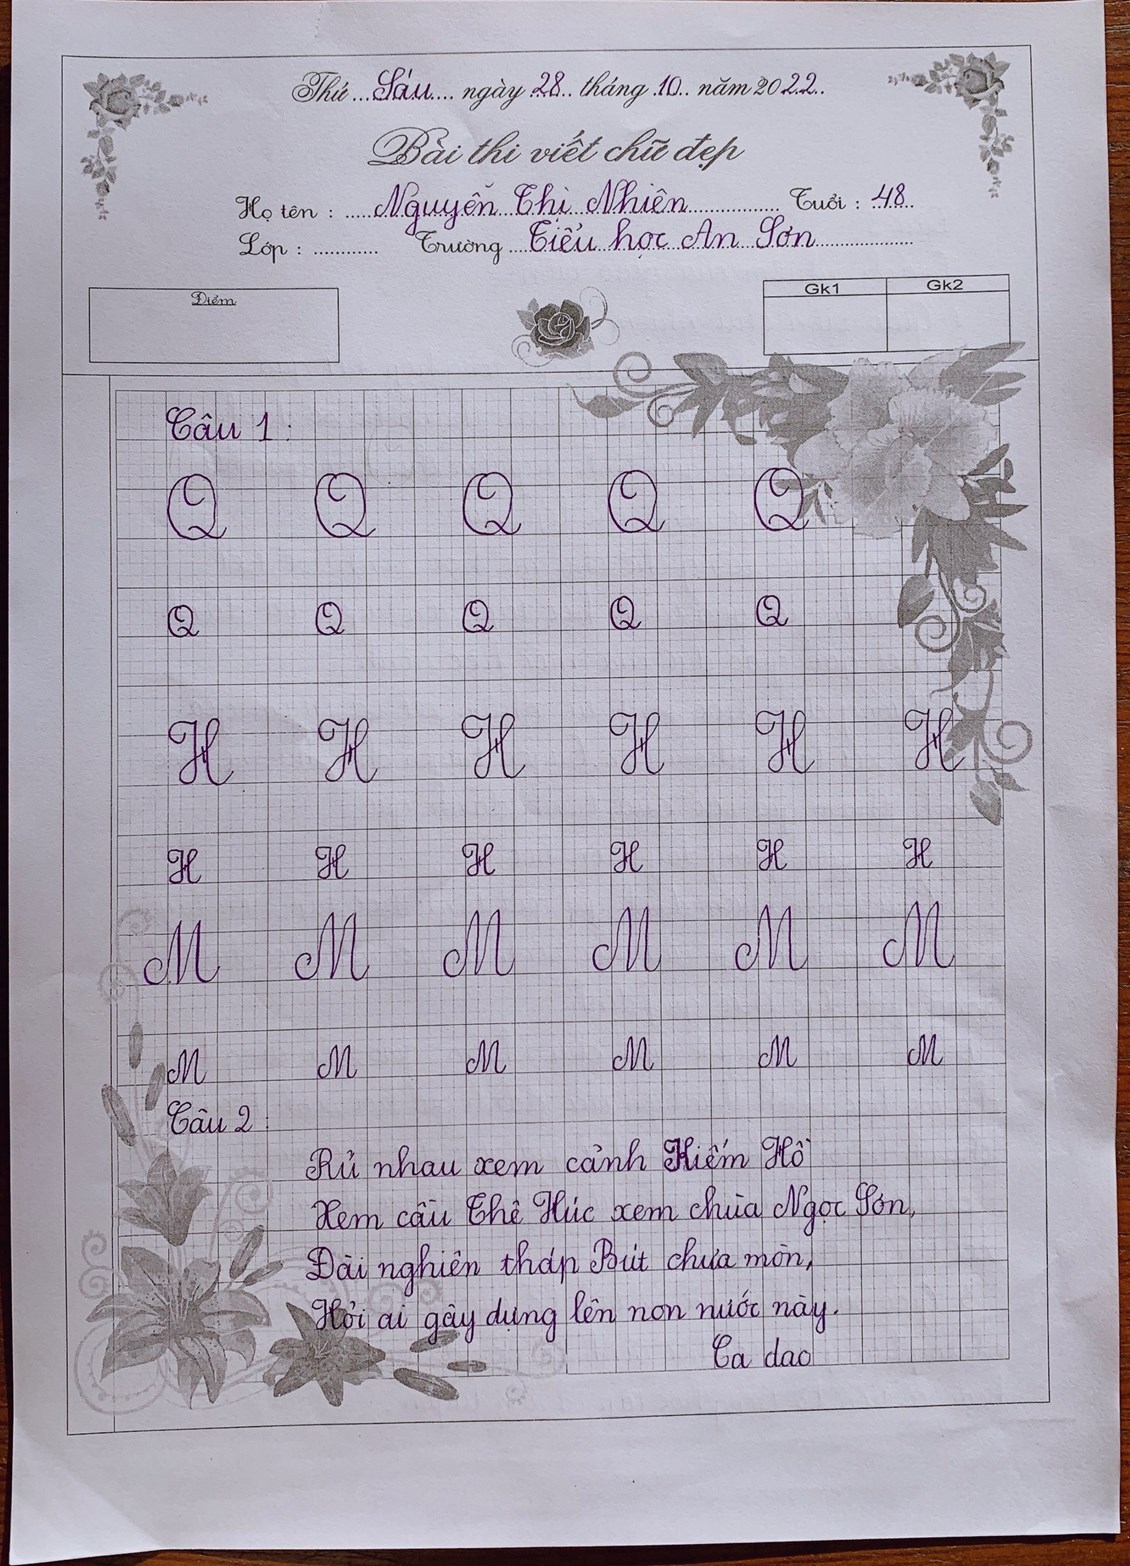 Thứ ... Sáu .... ngày 28.. tháng 10.. năm 2022..
Bài thi viết chữ đẹp
Họ tên : ..... Nguyễn Thị Nhiên ................ Tuổi : 48..
Lớp : ............ Trường ... Tiểu học An Sơn .................
Điểm
Gk1 Gk2
Câu 1 :
Q Q Q Q Q
Q Q Q Q Q
H H H H H H
H H H H H H
M M M M M M
M M M M M M
Câu 2 :
Rủ nhau xem cảnh Kiếm Hồ
Xem cầu Thê Húc xem chùa Ngọc Sơn,
Đài nghiên tháp Bút chưa mòn,
Hỏi ai gây dựng lên non nước này.
Ca dao